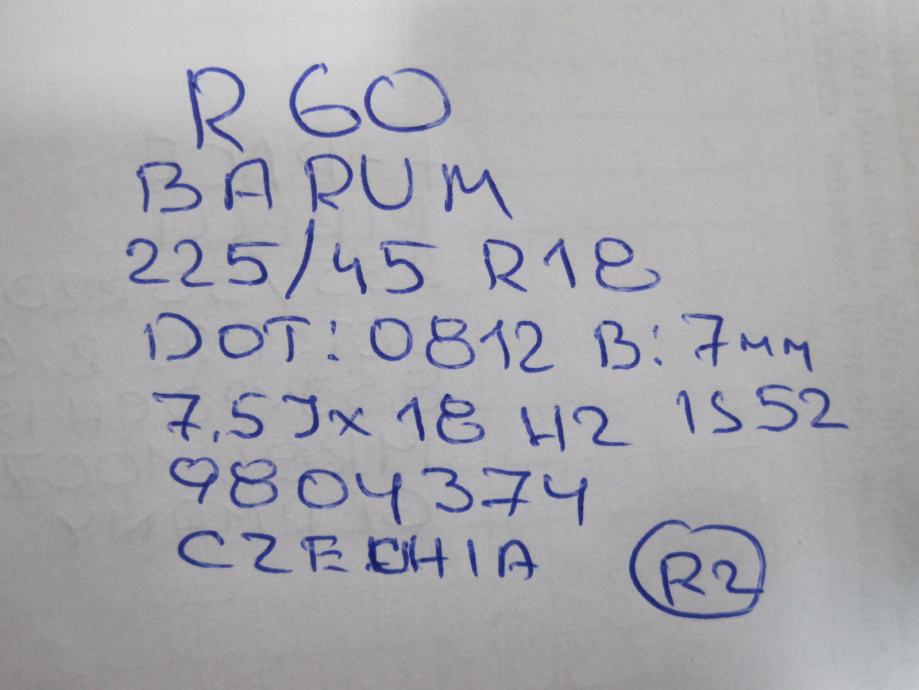 R 60
BARUM
225/45 R18
DOT: 0812 B: 7мм
7.5Jx18 H2 IS52
9804374
CZECHIA
R2